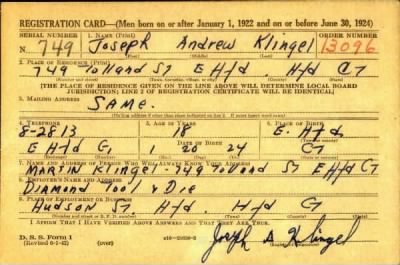 REGISTRATION CARD—(Men born on or after January 1, 1922 and on or before June 30, 1924)
SERIAL NUMBER 1. NAME (Print) ORDER NUMBER
N 749 Joseph Andrew Klingel 13096
(First) (Middle) (Last)
2. PLACE OF RESIDENCE (Print)
749 Tolland St E Htd. Htd CT
(Number and street) (Town, township, village, or city) (County) (State)
[THE PLACE OF RESIDENCE GIVEN ON THE LINE ABOVE WILL DETERMINE LOCAL BOARD
JURISDICTION; LINE 2 OF REGISTRATION CERTIFICATE WILL BE IDENTICAL]
3. MAILING ADDRESS
SAME.
[Mailing address if other than place indicated on line 2. If same insert word same]
4. TELEPHONE 5. AGE IN YEARS 6. PLACE OF BIRTH
8-2813 18 E. Htd,
DATE OF BIRTH
E Htd 1 20 24 CT
(Exchange) (Number) (Mo.) (Day) (Yr.) (State or country)
7. NAME AND ADDRESS OF PERSON WHO WILL ALWAYS KNOW YOUR ADDRESS
MARTIN Klingel - 749 Tolland St E Htd CT
8. EMPLOYER'S NAME AND ADDRESS
Diamond Tool & Die
9. PLACE OF EMPLOYMENT OR BUSINESS
Hudson St Htd. Htd CT
(Number and street or R. F. D. number) (Town) (County) (State)
I AFFIRM THAT I HAVE VERIFIED ABOVE ANSWERS AND THAT THEY ARE TRUE.
D. S. S. Form 1
(Revised 6-1-42) (over)
Joseph A Klingel